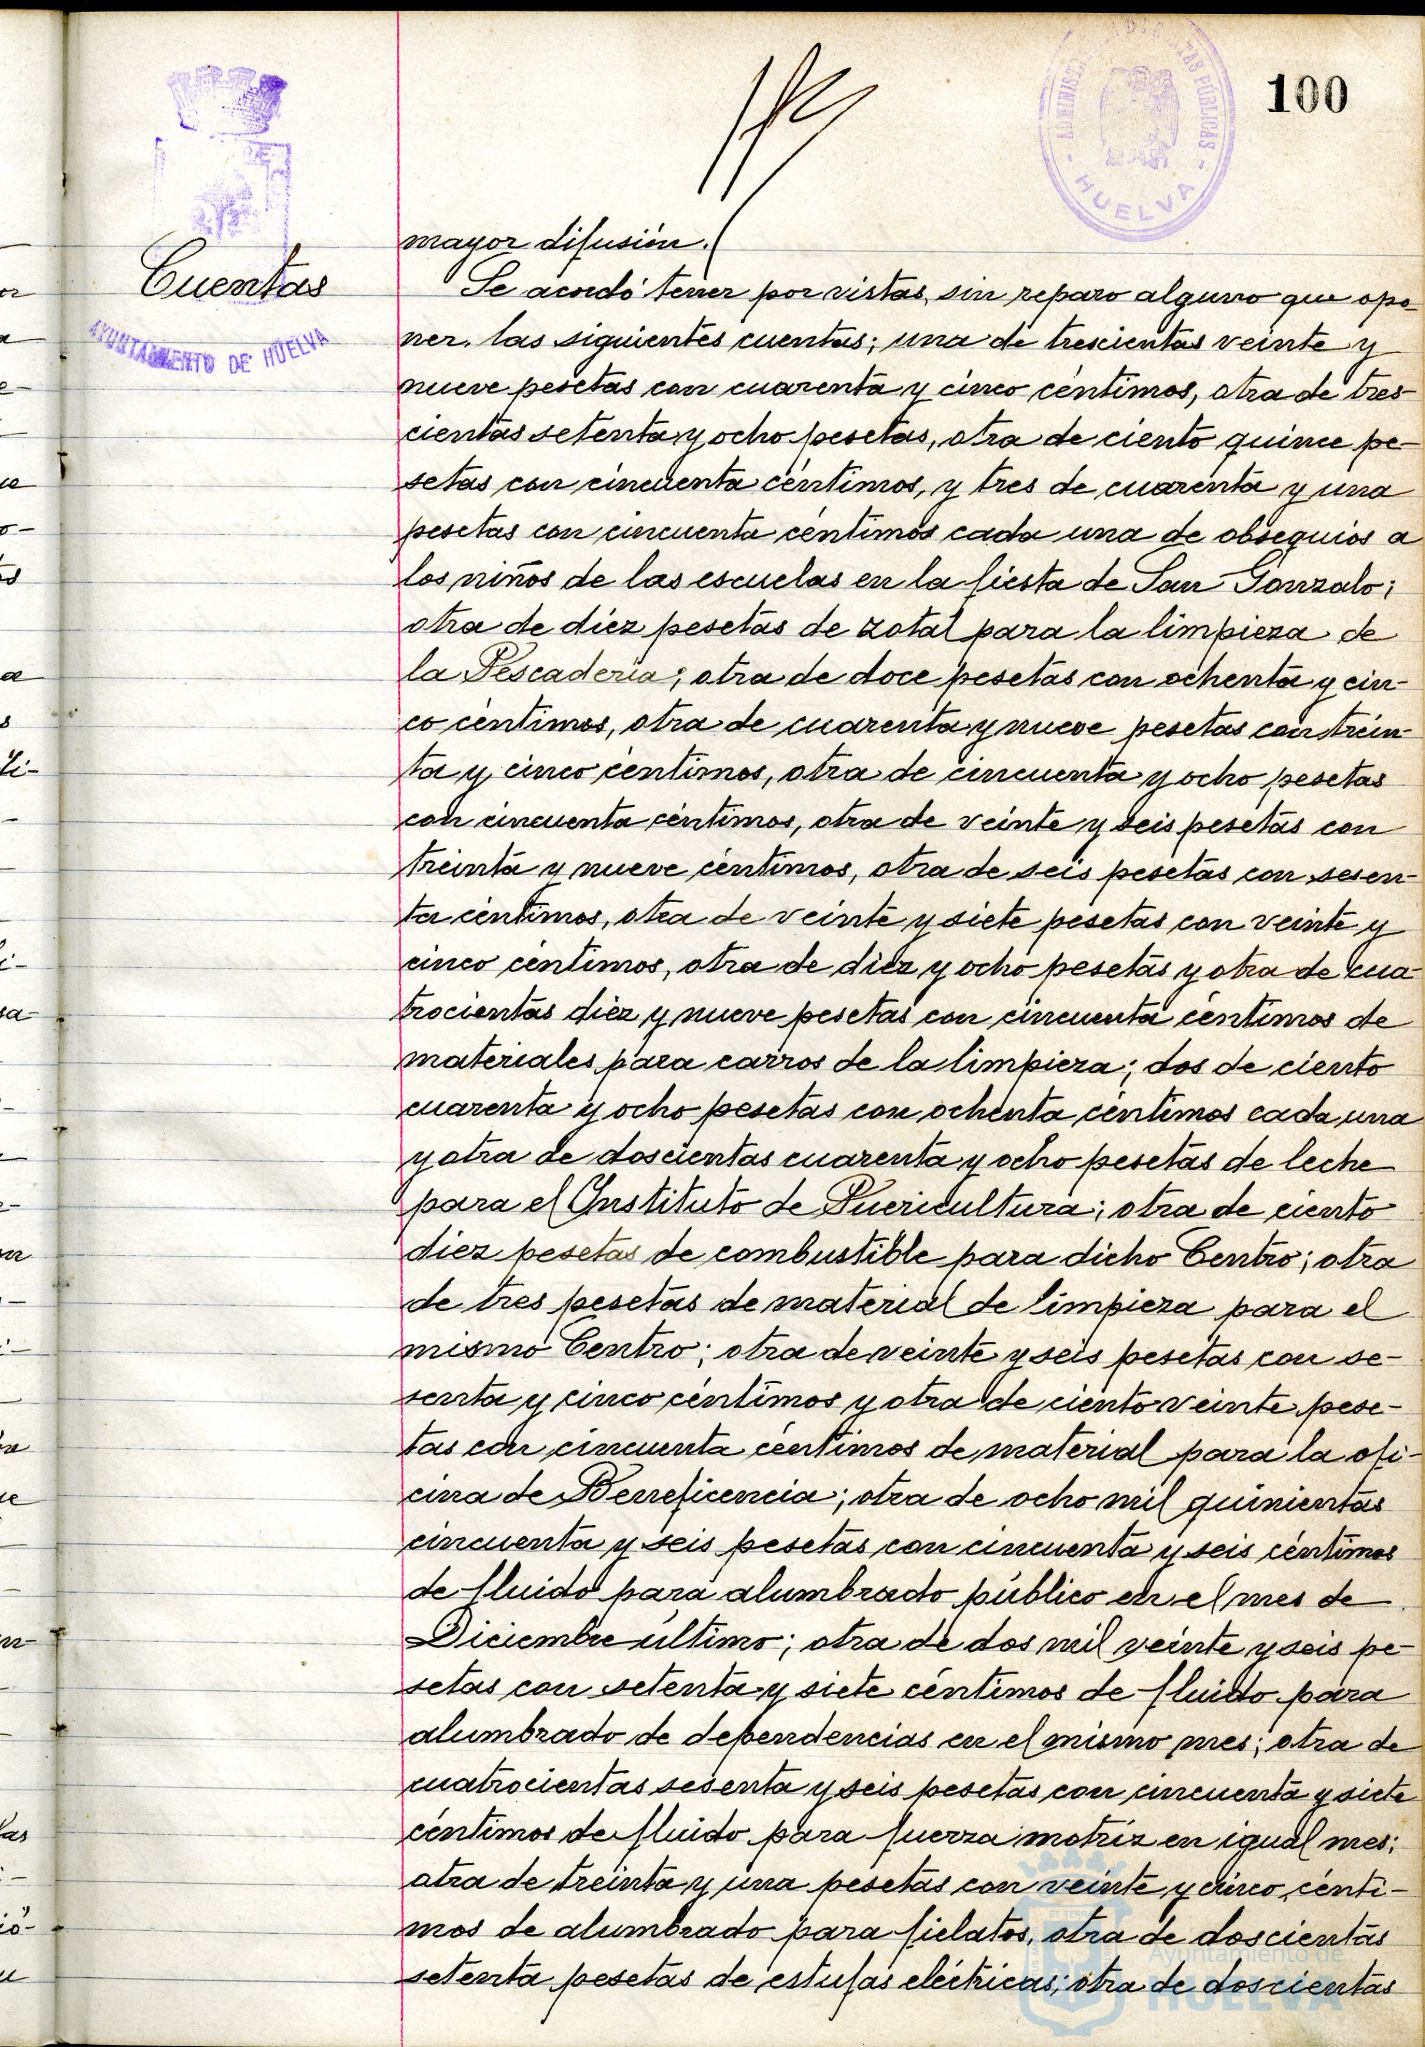 100
ADMINISTRACIÓN PÚBLICAS
HUELVA
Cuentas
AYUNTAMIENTO DE HUELVA
mayor difusión.
Se acordó tener por vistas, sin reparo alguno que opo
ner, las siguientes cuentas; una de trescientas veinte y
nueve pesetas con cuarenta y cinco céntimos, otra de tres-
cientas setenta y ocho pesetas, otra de ciento quince pe-
setas con cincuenta céntimos, y tres de cuarenta y una
pesetas con cincuenta céntimos cada una de obsequios a
los niños de las escuelas en la fiesta de San Gonzalo;
otra de diez pesetas de zotal para la limpieza de
la Pescadería; otra de doce pesetas con ochenta y cin-
co céntimos, otra de cuarenta y nueve pesetas con trein-
ta y cinco céntimos, otra de cincuenta y ocho pesetas
con cincuenta céntimos, otra de veinte y seis pesetas con
treinta y nueve céntimos, otra de seis pesetas con sesen-
ta céntimos, otra de veinte y siete pesetas con veinte y
cinco céntimos, otra de diez y ocho pesetas y otra de cua-
trocientas diez y nueve pesetas con cincuenta céntimos de
materiales para carros de la limpieza; dos de ciento
cuarenta y ocho pesetas con ochenta céntimos cada una
y otra de doscientas cuarenta y ocho pesetas de leche
para el Instituto de Puericultura; otra de ciento
diez pesetas de combustible para dicho Centro; otra
de tres pesetas de material de limpieza para el
mismo Centro; otra de veinte y seis pesetas con se-
senta y cinco céntimos y otra de ciento veinte pese-
tas con cincuenta céntimos de material para la ofi-
cina de Beneficencia; otra de ocho mil quinientas
cincuenta y seis pesetas con cincuenta y seis céntimos
de fluido para alumbrado público en el mes de
Diciembre último; otra de dos mil veinte y seis pe-
setas con setenta y siete céntimos de fluido para
alumbrado de dependencias en el mismo mes; otra de
cuatrocientas sesenta y seis pesetas con cincuenta y siete
céntimos de fluido para fuerza motriz en igual mes;
otra de treinta y una pesetas con veinte y cinco cénti-
mos de alumbrado para fielatos, otra de doscientas
setenta pesetas de estufas eléctricas; otra de doscientas
Ayuntamiento de
HUELVA